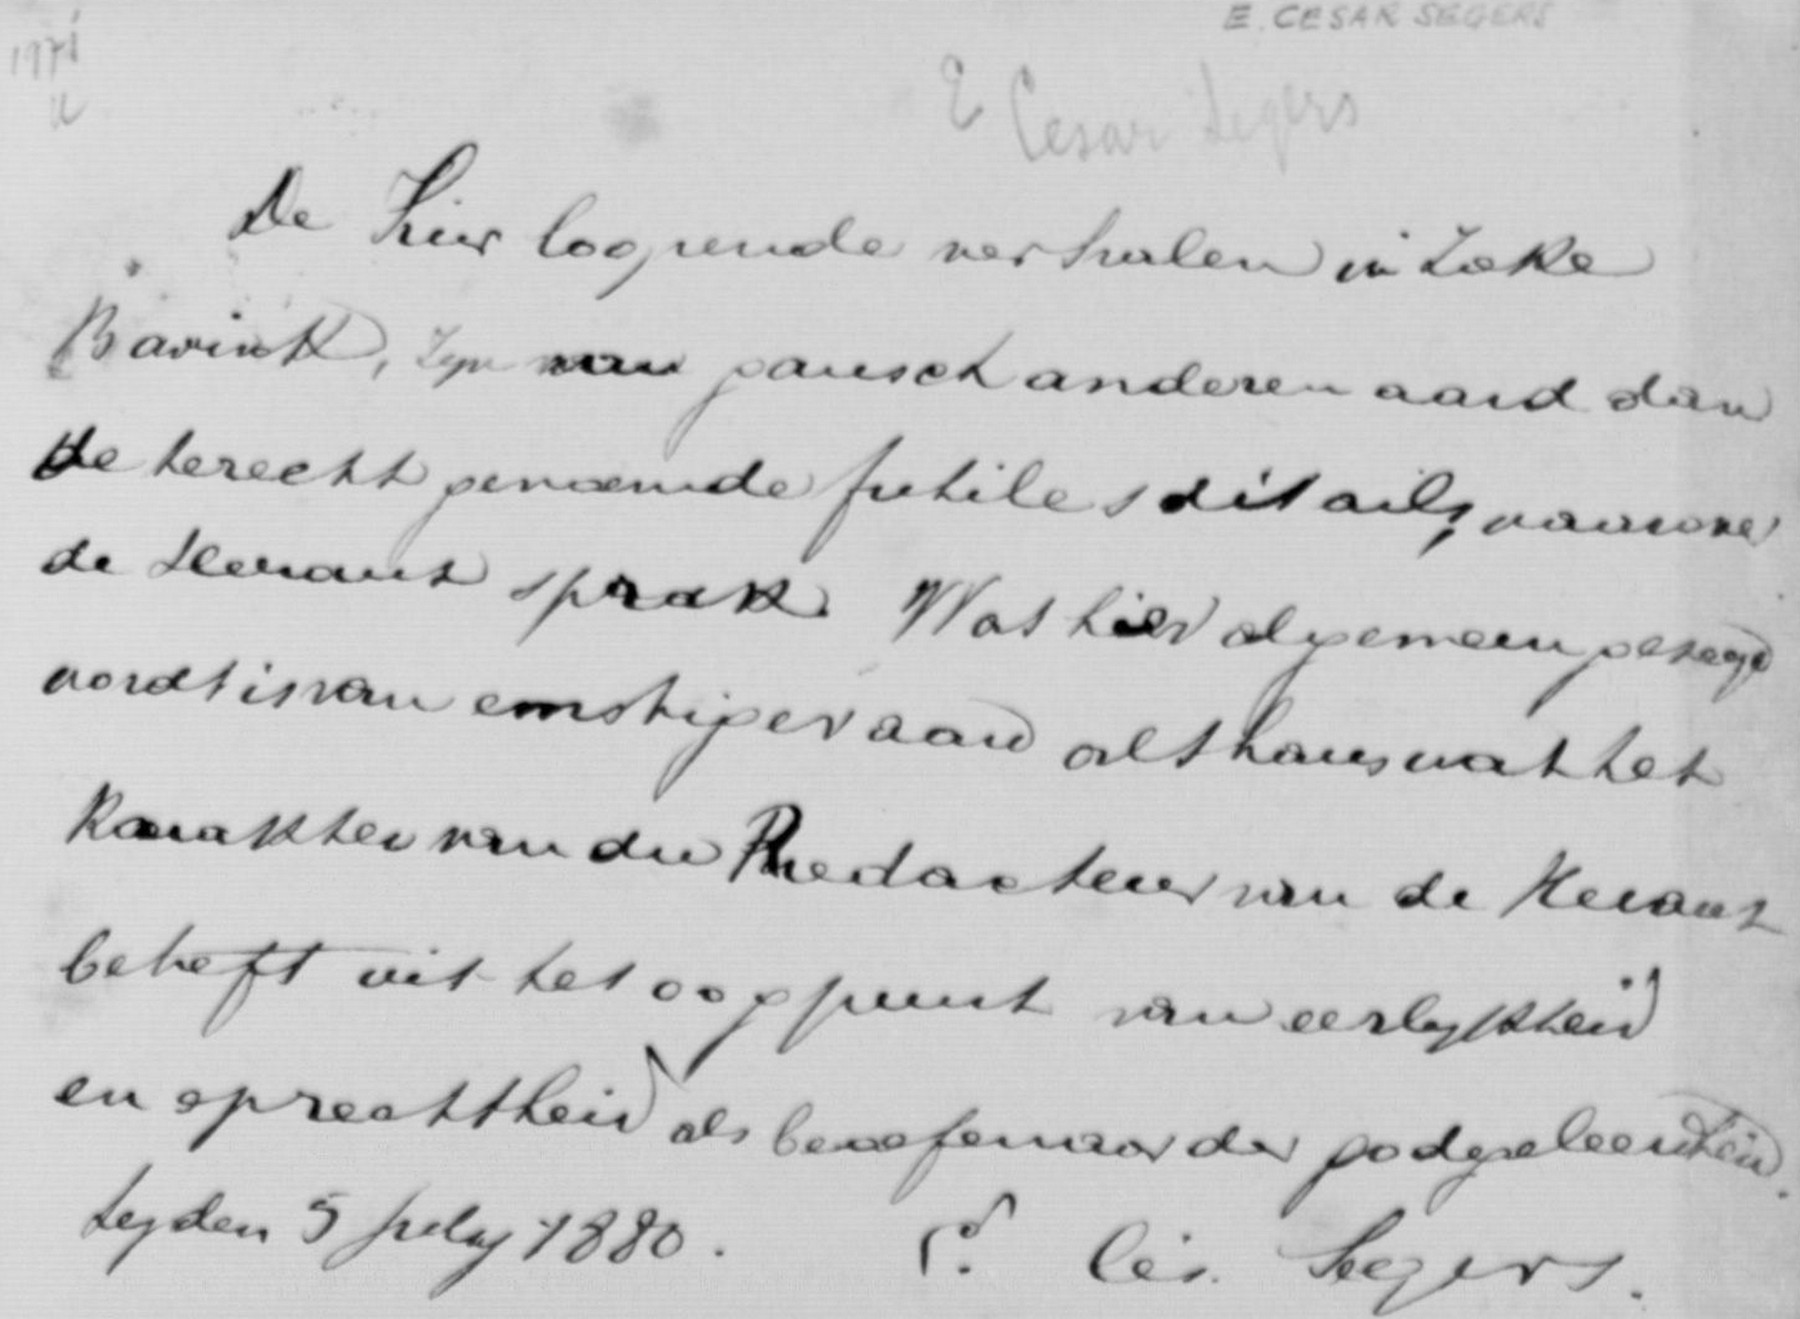 E. CESAR SEGERS
1971
E Cesar Segers
De hier loopende verhalen in zake
Bavinck, zyn van gansch anderen aard dan
de terecht genoemde futiles détails, waarover
de Heraut sprak. Wat hier algemeen gezegd
wordt is van ernstiger aard althans wat het
karakter van den Redacteur van de Heraut
betreft uit het oogpunt van eerlykheid
en oprechtheid als beoefenaar der godgeleerdheid.
Leyden 5 July 1880.
Cés. Segers.